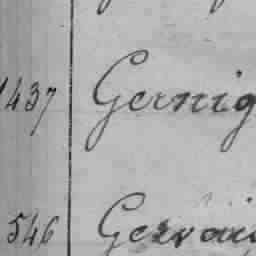 1437 Gernig
546 Gervais